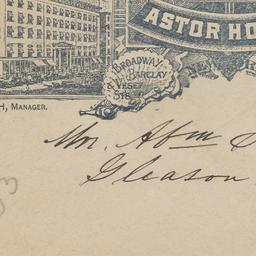 ASTOR HO
BROADWAY
BARCLAY
& VESEY
STS.
H, MANAGER.
Mr. Abm
Gleason